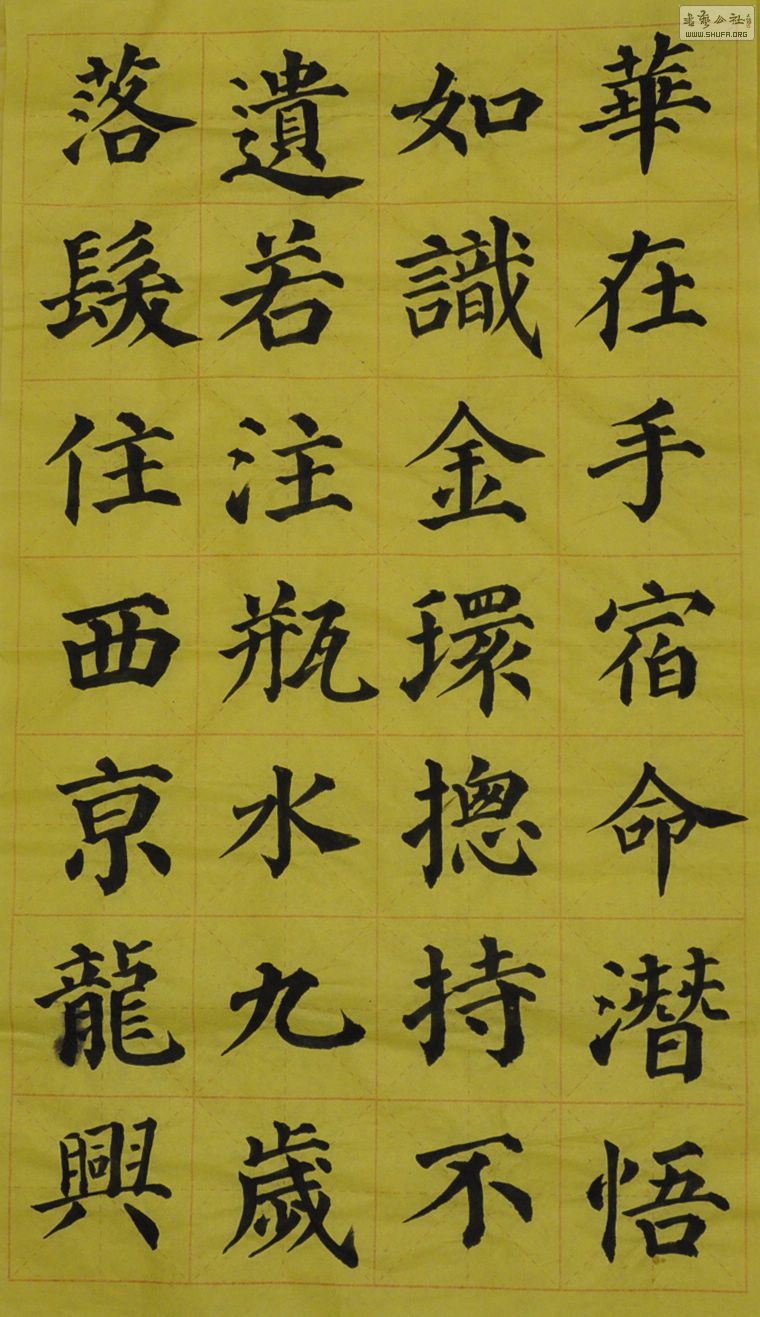 華在手宿命潛悟
如識金環揔持不
遺若注瓶水九歲
落髮住西京龍興
書藝公社
WWW.SHUFA.ORG